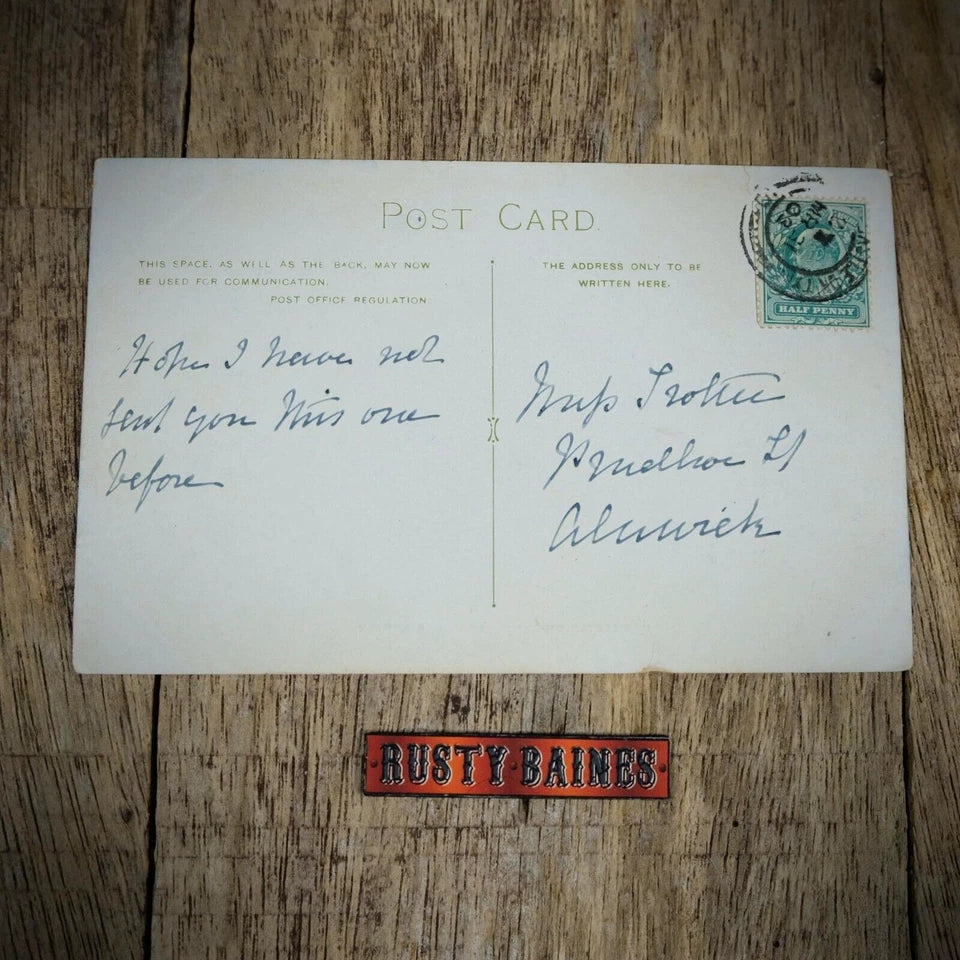 POST CARD
THIS SPACE, AS WELL AS THE BACK, MAY NOW
BE USED FOR COMMUNICATION.
POST OFFICE REGULATION
THE ADDRESS ONLY TO BE
WRITTEN HERE.
HALF PENNY
Hope I have not
sent you this one
before
Miss Trotter
Prudhoe St
Alnwick
RUSTY BAINES